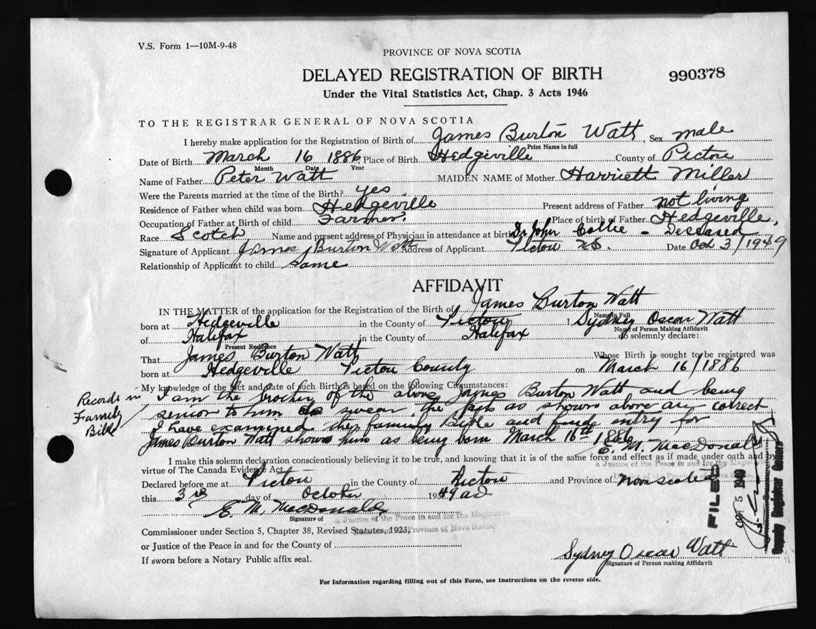 V.S. Form 1—10M-9-48
PROVINCE OF NOVA SCOTIA
DELAYED REGISTRATION OF BIRTH
990378
Under the Vital Statistics Act, Chap. 3 Acts 1946
TO THE REGISTRAR GENERAL OF NOVA SCOTIA
I hereby make application for the Registration of Birth of James Burton Watt, Sex male
Print Name in full
Date of Birth March 16 1886, Place of Birth Hedgeville County of Pictou
Month Date Year
Name of Father Peter Watt MAIDEN NAME of Mother Harriett Miller
Were the Parents married at the time of the Birth? yes
Residence of Father when child was born Hedgeville Present address of Father not living
Occupation of Father at Birth of child Farmer. Place of birth of Father Hedgeville,
Race Scotch Name and present address of Physician in attendance at birth Dr John Collie - Deseased
Signature of Applicant James Burton Watt Address of Applicant Pictou N.S. Date Oct 3/1949
Relationship of Applicant to child same
AFFIDAVIT
IN THE MATTER of the application for the Registration of the Birth of James Burton Watt
Name in Full
born at Hedgeville in the County of Pictou I Sydney Oscar Watt
Name of Person Making Affidavit
of Halifax in the County of Halifax do solemnly declare:
Present Residence
That James Burton Watt Whose Birth is sought to be registered was
born at Hedgeville Pictou County on March 16/1886
My knowledge of the fact and date of such Birth is based on the following Circumstances:
Records in Family Bible
I am the brother of the above James Burton Watt and being
senior to him do swear the facts as shown above are correct
I have examined the family Bible and find entry for
James Burton Watt shows him as being born March 16th 1886
E. M. MacDonald
A Justice of the Peace in and for the
I make this solemn declaration conscientiously believing it to be true, and knowing that it is of the same force and effect as if made under oath and by
virtue of The Canada Evidence Act.
Declared before me at Pictou in the County of Pictou and Province of Nova Scotia
this 3rd day of October 1949 AD
E. M. MacDonald
Signature of
A Justice of the Peace in and for the
Province of Nova Scotia
Commissioner under Section 5, Chapter 38, Revised Statutes, 1923,
or Justice of the Peace in and for the County of
If sworn before a Notary Public affix seal.
Sydney Oscar Watt
Signature of Person making Affidavit
FILED
OCT 5 1949
For Information regarding filling out of this Form, see Instructions on the reverse side.